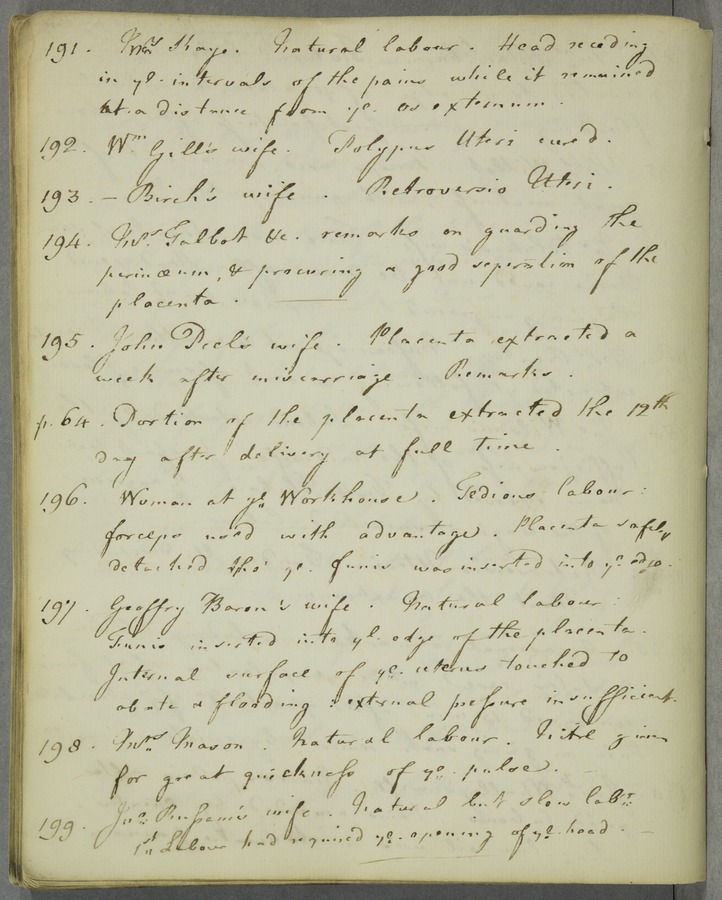 191. Mrs Kaye. Natural labour. Head receding
in ye. intervals of the pains while it remained
at a distance from ye. os externum.
192. Wm. Gill's wife. Polypus Uteri cured.
193. – Birch's wife. Retroversio Uteri.
194. Mrs. Talbot &c. remarks on guarding the
perinæum, & procuring a good seperation of the
placenta.
195. John Peel's wife. Placenta extracted a
week after miscarriage. Remarks.
p. 64. Portion of the placenta extracted the 12th
day after delivery at full time.
196. Woman at ye Workhouse. Tedious labour:
forceps used with advantage. Placenta safely
detached tho' ye. funis was inserted into ye. edge.
197. Geoffry Baron's wife. Natural labour:
Funis inserted into ye. edge of the placenta.
Internal surface of ye. uterus touched to
abate a flooding: external pressure insufficient.
198. Mrs. Mason. Natural labour. Nitre given
for great quickness of ye. pulse.
199. Jno. wife. Natural but slow labr.
1st Labour had required ye. opening of ye. head. –